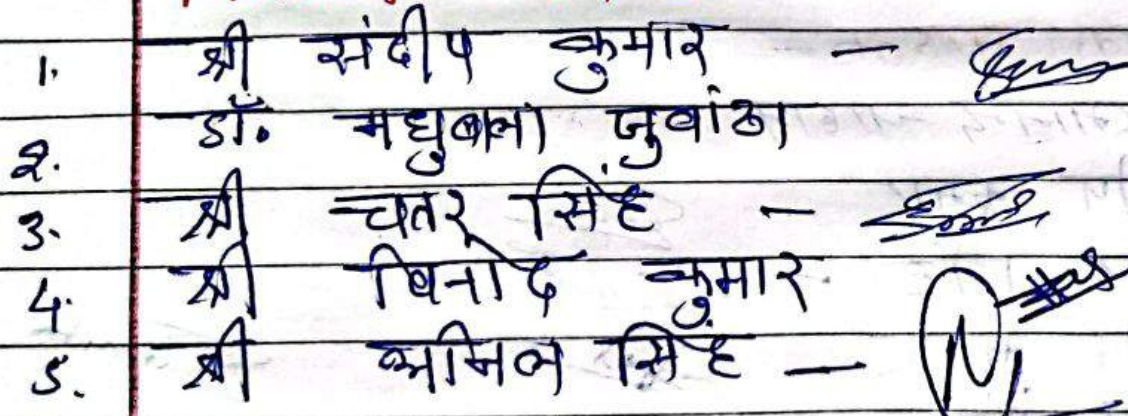 1. श्री संदीप कुमार —
2. डॉ. मधुबाला जुवांठा
3. श्री चतर सिंह —
4. श्री विनोद कुमार
5. श्री अनिल सिंह —